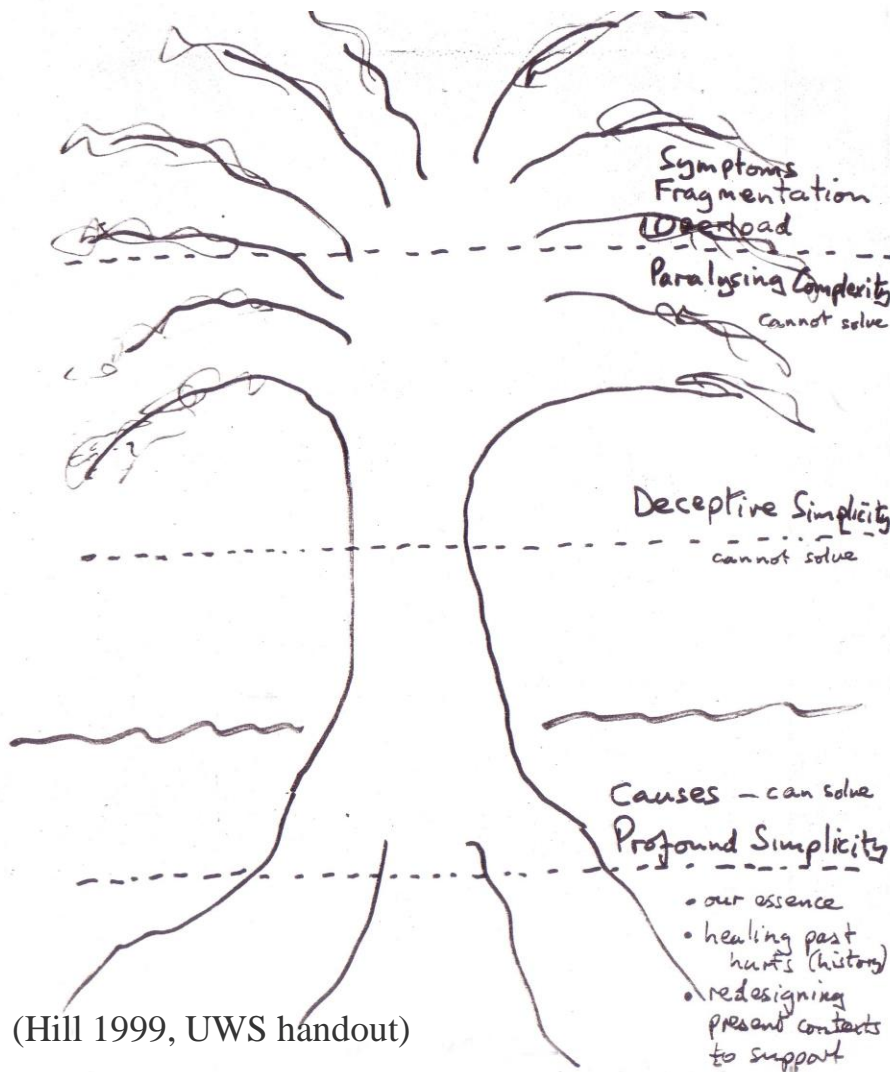 Symptoms
Fragmentation
Overload
Paralysing Complexity
cannot solve
Deceptive Simplicity
cannot solve
Causes – can solve
Profound Simplicity
• our essence
• healing past
hurts (history)
• redesigning
present contexts
to support
(Hill 1999, UWS handout)